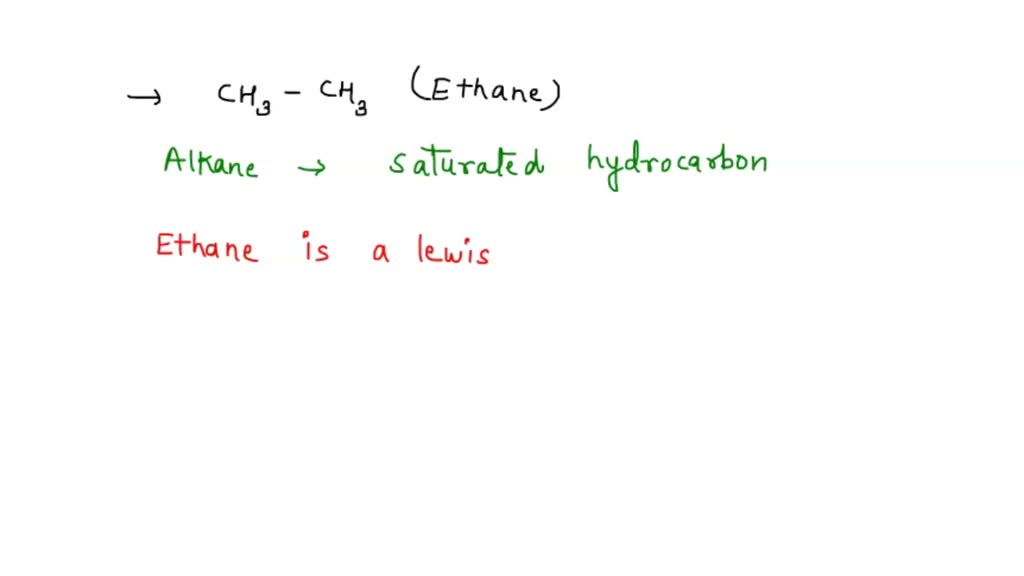 → CH₃ - CH₃ (Ethane)
Alkane → saturated hydrocarbon
Ethane is a lewis